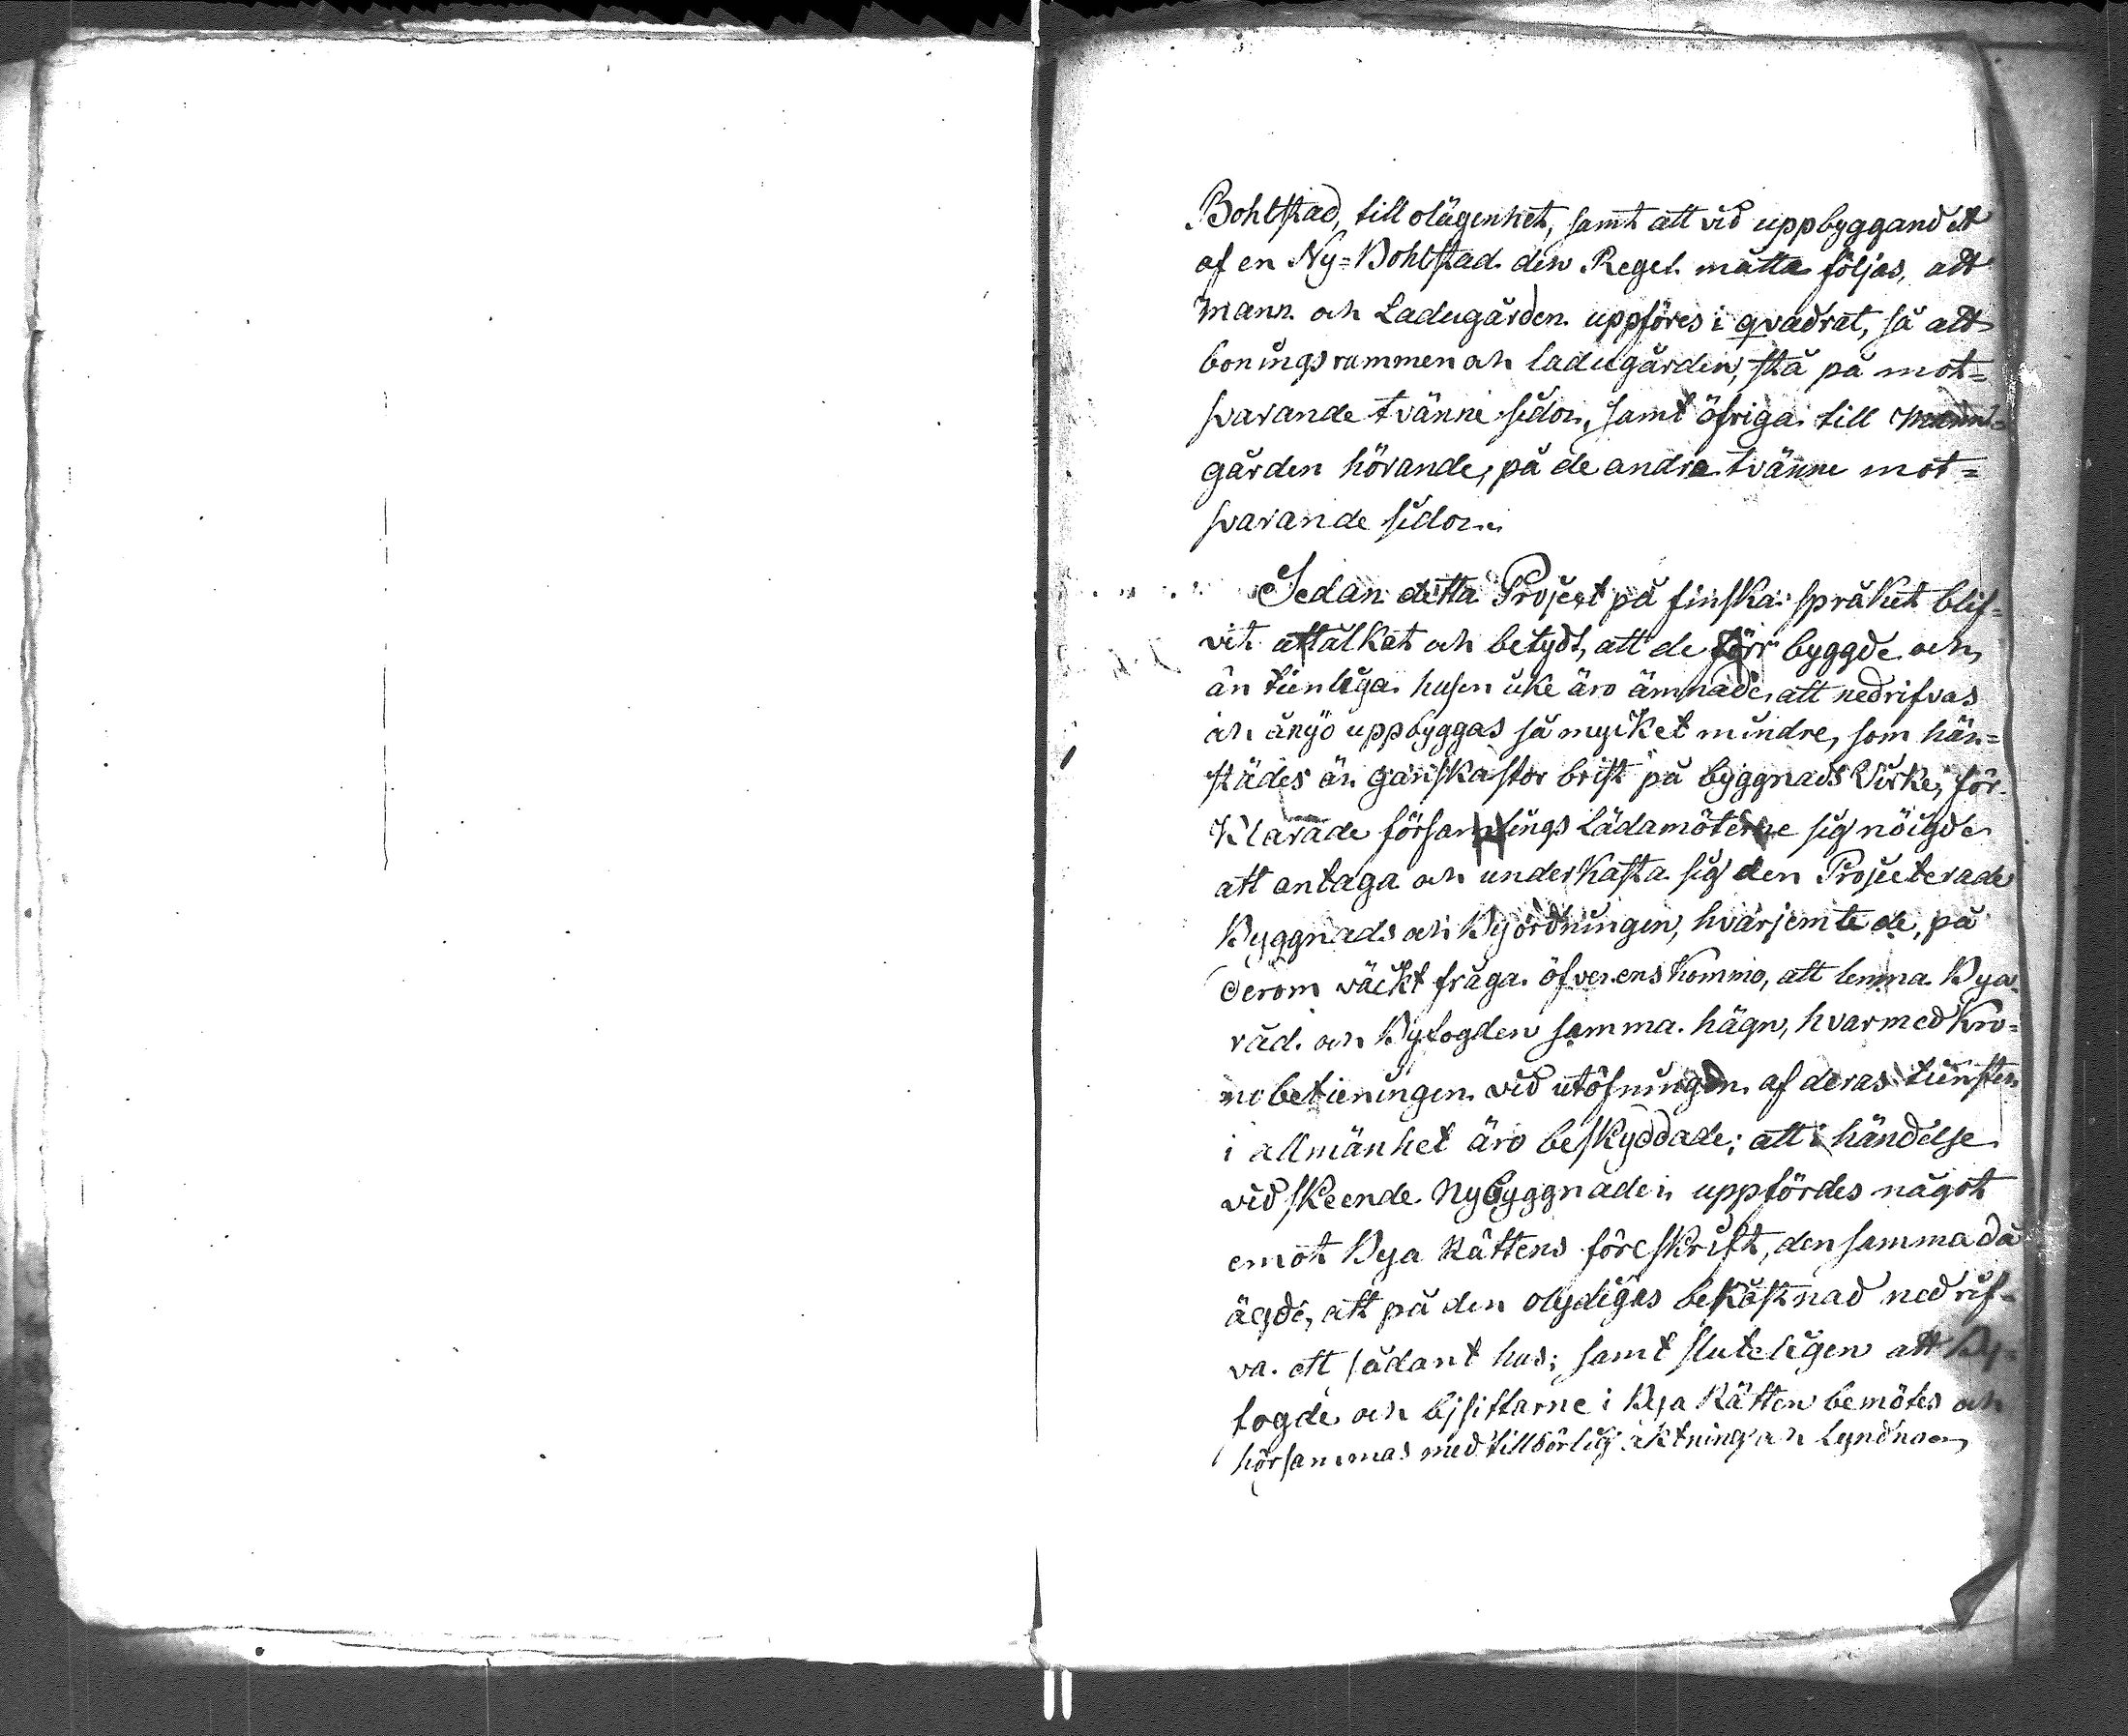 Bohlstad, till olägenhet, samt att vid uppbyggandet
af en Ny=Bohlstad den Regel måtte följas, att
Mann och Ladugården uppföres i qvadrat, så att
boningsrummen och ladugården, stå på mot=
svarande tvänne sidor, samt öfriga till Mann=
gården hörande, på de andra tvänne mot=
svarande sidor.
Sedan detta Project på finska språket blif=
vit uttålkat och betydt, att de förr byggde och
än tienliga husen icke äro ämnade att nedrifvas
och ånyo uppbyggas så mycket mindre, som hän=
städes är ganska stor brist på byggnads Virke, för
klarade församlings Ledamöterne sig nöigde
att antaga och underkasta sig den Projecterade
Byggnads och Byordningen, hvarjemte de, på
derom väckt fråga öfverenskommo, att lemna Bya
råd och Byfogden samma hägn, hvarmed Kro=
nobetieningen vid utöfningen af deras tienster
i allmänhet äro beskyddade; att i händelse
vid skeende Nybyggnader uppfördes något
emot Bya Rättens föreskrift, den samma då
ägde, att på den olydiges bekostnad nedrif=
va ett sådant hus; samt sluteligen att By=
fogde och bisittarne i Bya Rätten bemötes och
hörsammas med tillbörlig acktning och Lyndnad